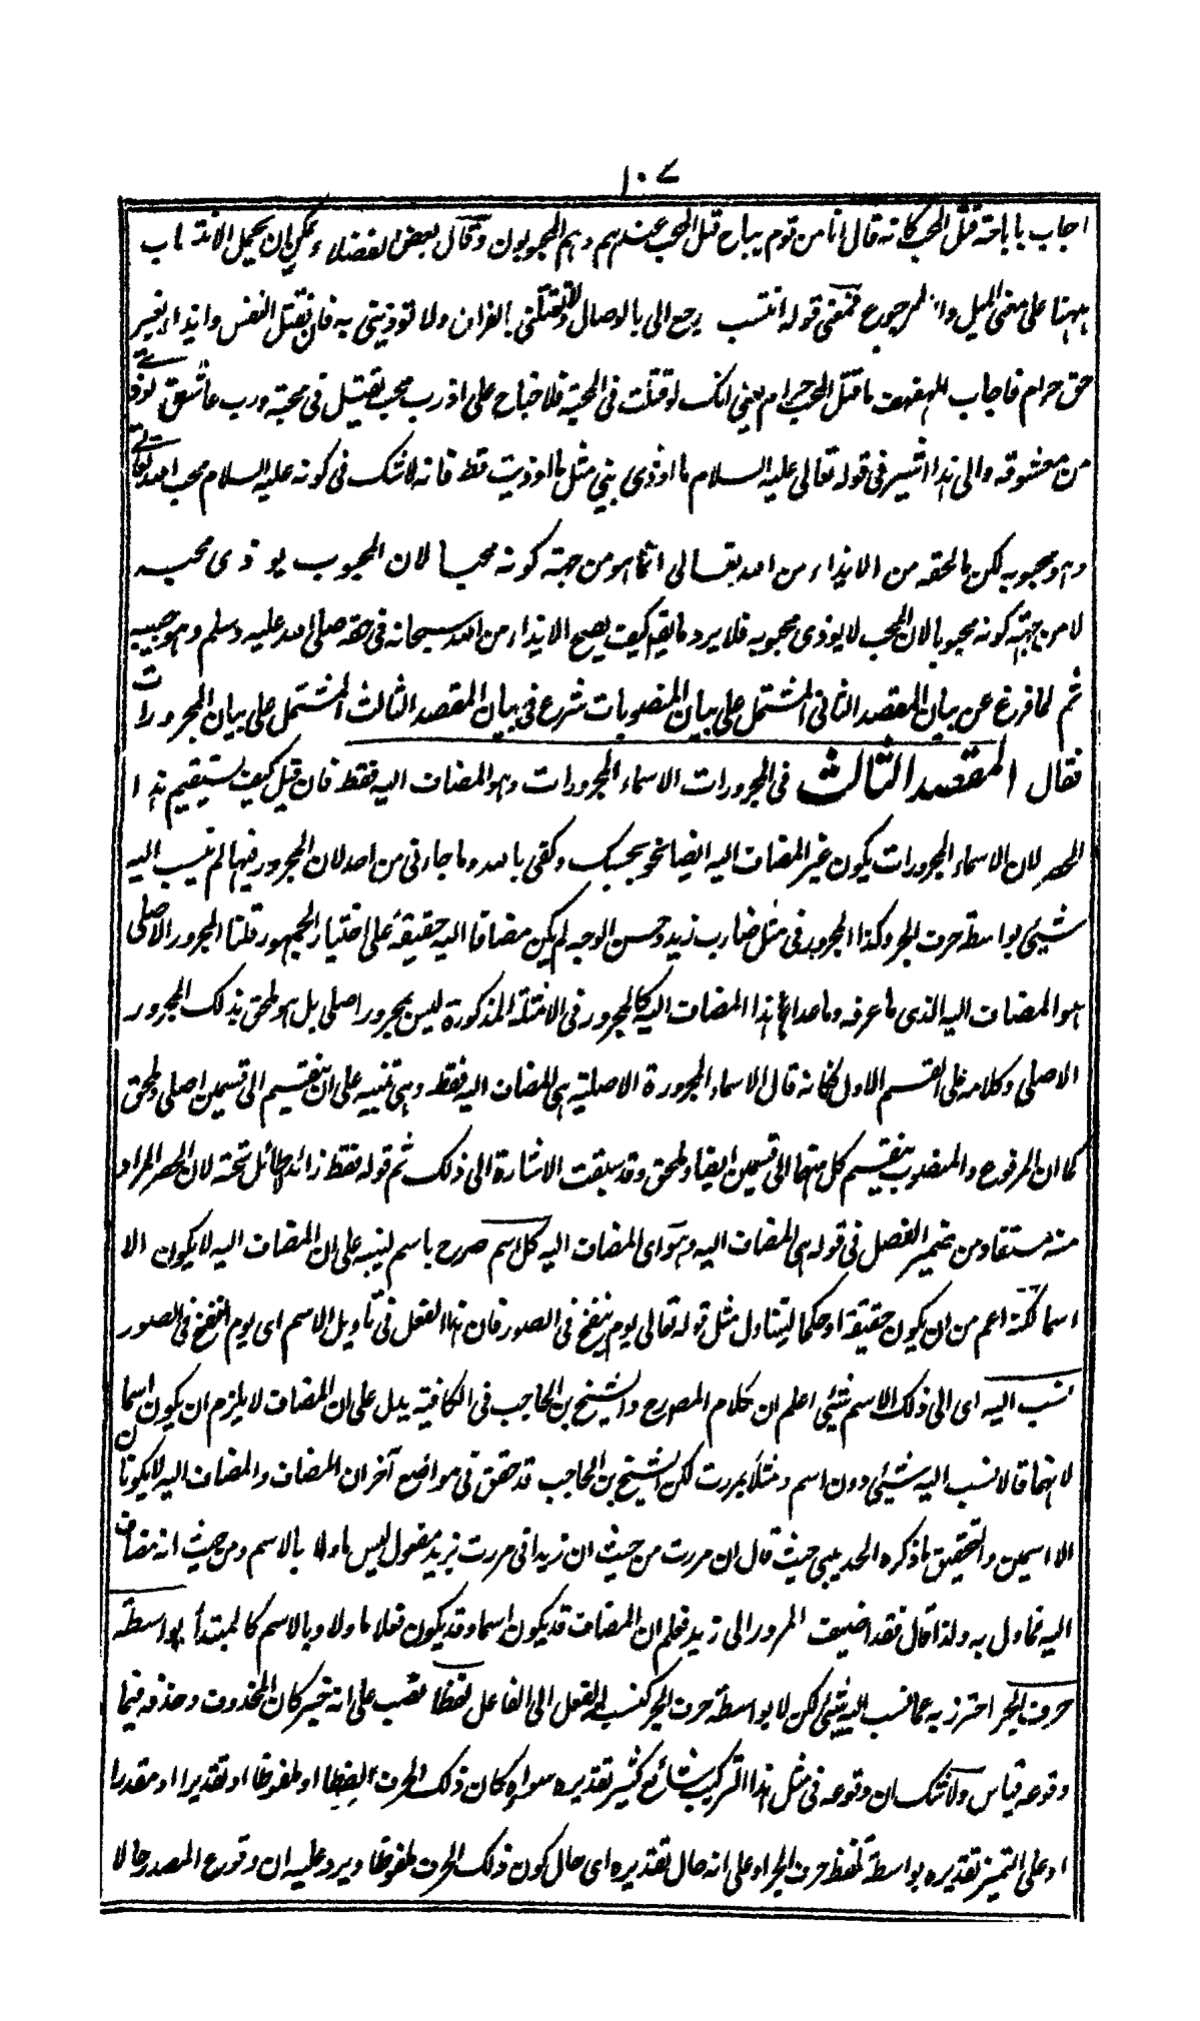 ١٠٧
اجاب باباحة قتل المحب كانه قال انا من قوم يباح قتل المحب عندهم وهم المحبوبون وقال بعض الفضلاء يمكن ان يحمل الانتساب
ههنا على معنى الميل والرجوع فمعنى قوله انتسب رجع الى بالوصال ولا تقتلني بالفراق ولا توذيني به فان قتل النفس وايذاءه بغير
حق حرام فاجاب المهفهف ما قتل المحب حرام يعني انك لو قتلت في المحبة فلا جناح على اذ رب محب يقتل في محبته ورب عاشق يوذى
من معشوقه والى هذا اشير في قوله تعالى عليه السلام ما اوذى نبي مثل ما اوذيت قط فانه لا شك في كونه عليه السلام محب الله تعالى
وهو محبوبه لكن ما لحقه من الايذاء من الله تعالى انما هو من جهة كونه محبا لان المحبوب يوذى محبه
لا من جهة كونه محبوبا لان المحب لا يوذى محبوبه فلا يرد ما يقال كيف يصح الايذاء من الله سبحانه في حقه صلى الله عليه وسلم وهو حبيبه
ثم لما فرغ عن بيان المقصد الثاني المشتمل على بيان المنصوبات شرع في بيان المقصد الثالث المشتمل على بيان المجرورات
فقال المقصد الثالث في المجرورات الاسماء المجرورات وهو المضاف اليه فقط فان قيل كيف يستقيم هذا
الحصر لان الاسماء المجرورات يكون غير المضاف اليه ايضا نحو بحسبك وكفى بالله وما جاءني من احد لان المجرور فيها لم ينسب اليه
شيئ بواسطة حرف الجر وكذا المجرور في مثل ضارب زيد وحسن الوجه لم يكن مضافا اليه حقيقة على اختيار الجمهور قلنا المجرور الاصلي
هو المضاف اليه الذي ما عرفه وما عدا هذا المضاف اليه كالمجرور في الامثلة المذكورة ليس بمجرور اصلي بل هو ملحق بذلك المجرور
الاصلي وكلامه على القسم الاول فكانه قال الاسماء المجرورة الاصلية هي المضاف اليه فقط وهي تنبيه على ان ينقسم الى قسمين اصلي وملحق
كما ان المرفوع والمنصوب ينقسم كل منهما الى قسمين ايضا وملحق وقد سبقت الاشارة الى ذلك ثم قوله فقط زائد لا طائل تحته لان الحصر المراد
منه مستفاد من ضمير الفصل في قوله هي المضاف اليه وهو اى المضاف اليه كل اسم صرح باسم لينبه على ان المضاف اليه لا يكون الا
اسما لكنه اعم من ان يكون حقيقة او حكما ليتناول مثل قوله تعالى يوم ينفخ في الصور فان هذا الفعل في تاويل الاسم اى يوم النفخ في الصور
نسب اليه اى الى ذلك الاسم شيئ اعلم ان كلام المصرح والشيخ بن الحاجب في الكافية يدل على ان المضاف لا يلزم ان يكون اسما
لانهما قالا نسب اليه شيئ دون اسم ومثلا بمررت لكن الشيخ بن الحاجب قد حقق في مواضع آخر ان المضاف والمضاف اليه لا يكونان
الا اسمين والتحقيق ما ذكره الحديبي حيث قال ان مررت من حيث ان زيدا في مررت بزيد مفعول ليس ماولا بالاسم ومن حيث انه مضاف
اليه فماول به ولذا قال فقد اضيف المرور الى زيد فعلم ان المضاف قد يكون اسما وقد يكون فعلا ماولا وبالاسم كالمبتدأ بواسطة
حرف الجر احترز به عما نسب اليه شيئ لكن لا بواسطة حرف الجر كنسبة الفعل الى الفاعل لفظا نصب على انه خبر كان المحذوف وحذفه فيما
وقوعه قياس ولا شك ان وقوعه في مثل هذا التركيب شائع كثير تقديره سواء كان ذلك الحرف لفظا او ملفوظا او تقديرا او مقدرا
او على التميز تقديره بواسطة لفظ حرف الجر او على انه حال تقديره اى حال كون ذلك الحرف ملفوظا ويرد عليه ان وقوع المصدر حالا